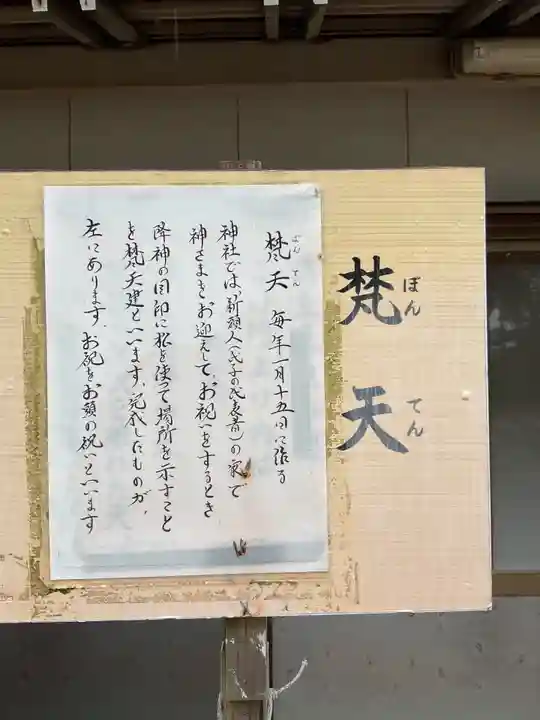 梵天
ぼんてん
梵天 毎年一月十五日に限る
ぼんてん
神社では、新頭人(氏子の代表者)の家で
神さまをお迎えして、お祝いをするとき
降神の目印に松を使って場所を示すこと
を梵天建といいます。完成したものが、
左にあります。お祝をお頭の祝いといいます